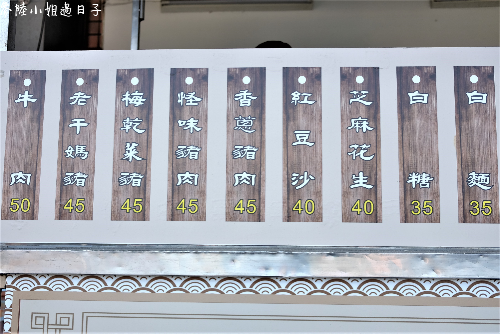 陸小姐過日子
牛肉
50
老干媽豬
45
梅乾菜豬
45
怪味豬肉
45
香蔥豬肉
45
紅豆沙
40
芝麻花生
40
白糖
35
白麵
35